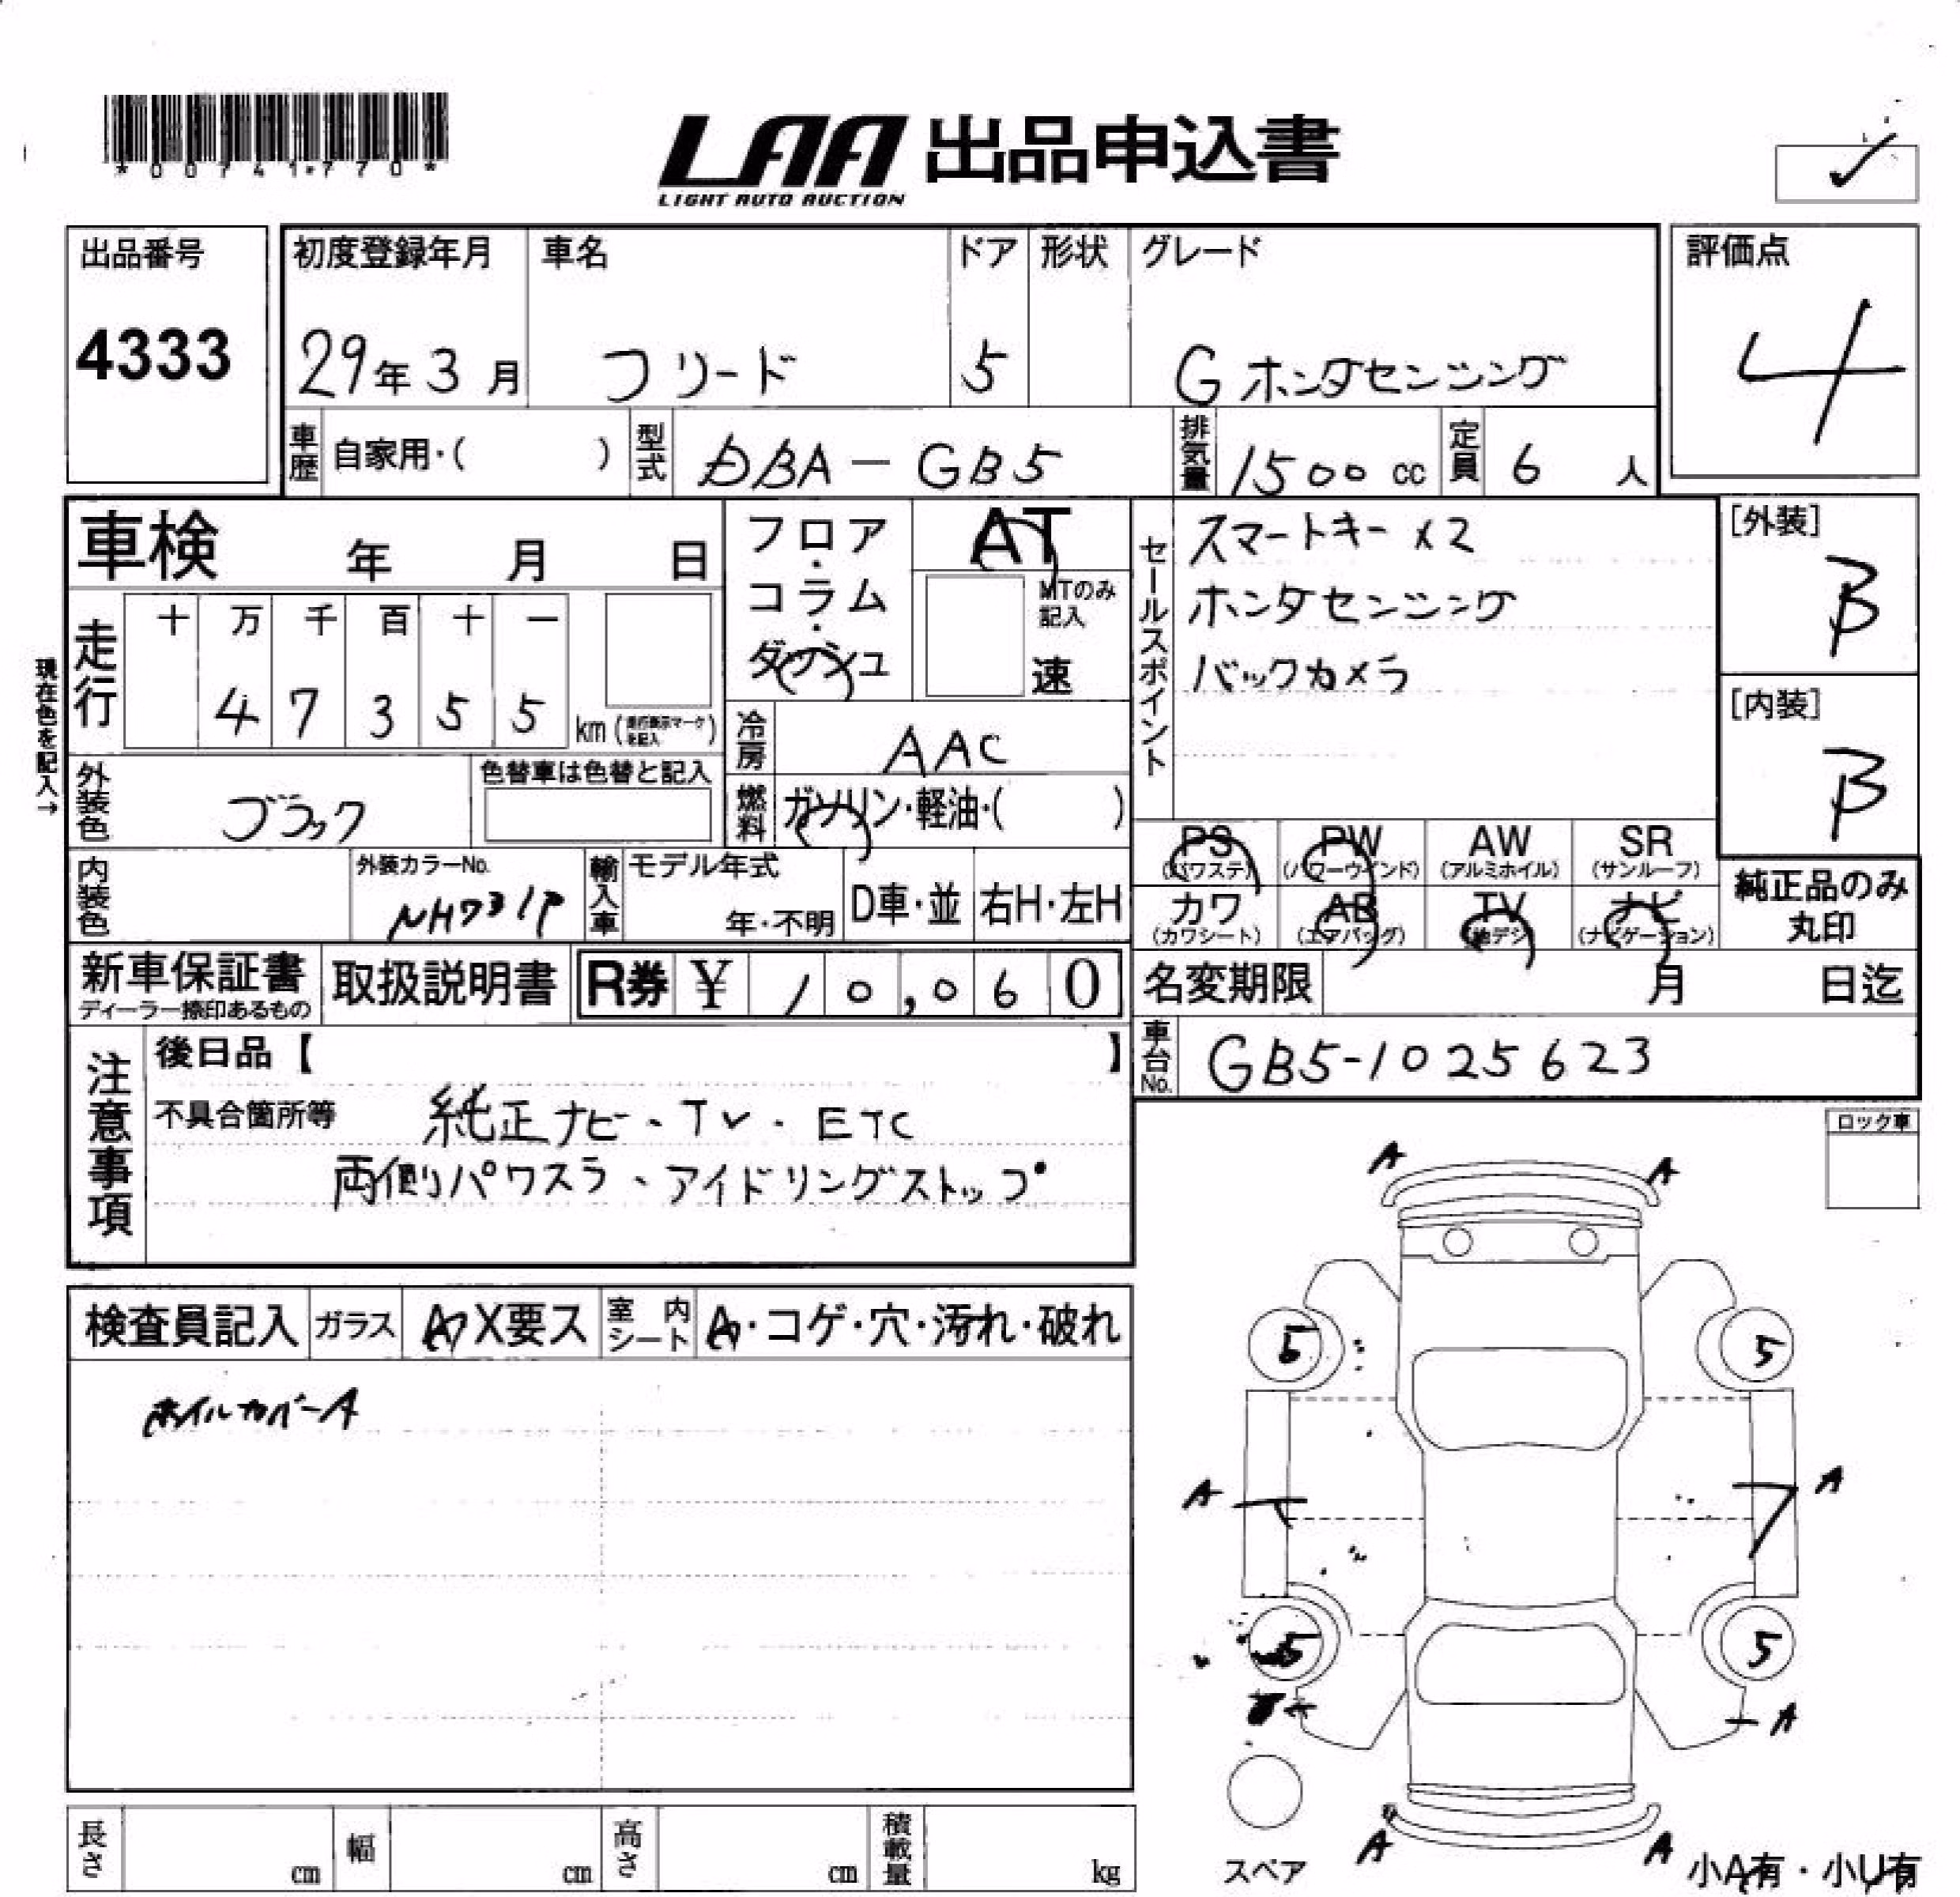 *00741770*
LAA 出品申込書
LIGHT AUTO AUCTION
出品番号
4333
初度登録年月
29年3月
車名
フリード
ドア
5
形状
グレード
G ホンダセンシング
評価点
4
車歴 自家用・( )
型式 DBA-GB5
排気量 1500 cc
定員 6 人
車検 年 月 日
フロア・コラム・ダッシュ
AT
MTのみ記入
速
セールスポイント
スマートキー x2
ホンダセンシング
バックカメラ
[外装]
B
[内装]
B
現在色を記入→
走行
十 万 千 百 十 一
4 7 3 5 5
km (走行表示マークを記入)
冷房 AAC
外装色 ブラック
色替車は色替と記入
燃料 ガソリン・軽油・( )
PS (パワステ)
PW (パワーウインド)
AW (アルミホイル)
SR (サンルーフ)
カワ (カワシート)
AB (エアバッグ)
TV (地デジ)
ナビ (ナビゲーション)
純正品のみ丸印
内装色
外装カラーNo.
NH731P
輸入車
モデル年式
年・不明
D車・並
右H・左H
新車保証書
ディーラー捺印あるもの
取扱説明書
R券 ¥ 10,060
名変期限 月 日迄
車台No. GB5-1025623
注意事項
後日品【 】
不具合箇所等 純正ナビ・TV・ETC
両側パワスラ、アイドリングストップ
ロック車
検査員記入
ガラス A・X要ス
室内シート A・コゲ・穴・汚れ・破れ
ホイルカバーA
A A
5 5
A A
5 5
A
スペア
A A
小A有・小U有
長さ cm
幅 cm
高さ cm
積載量 kg